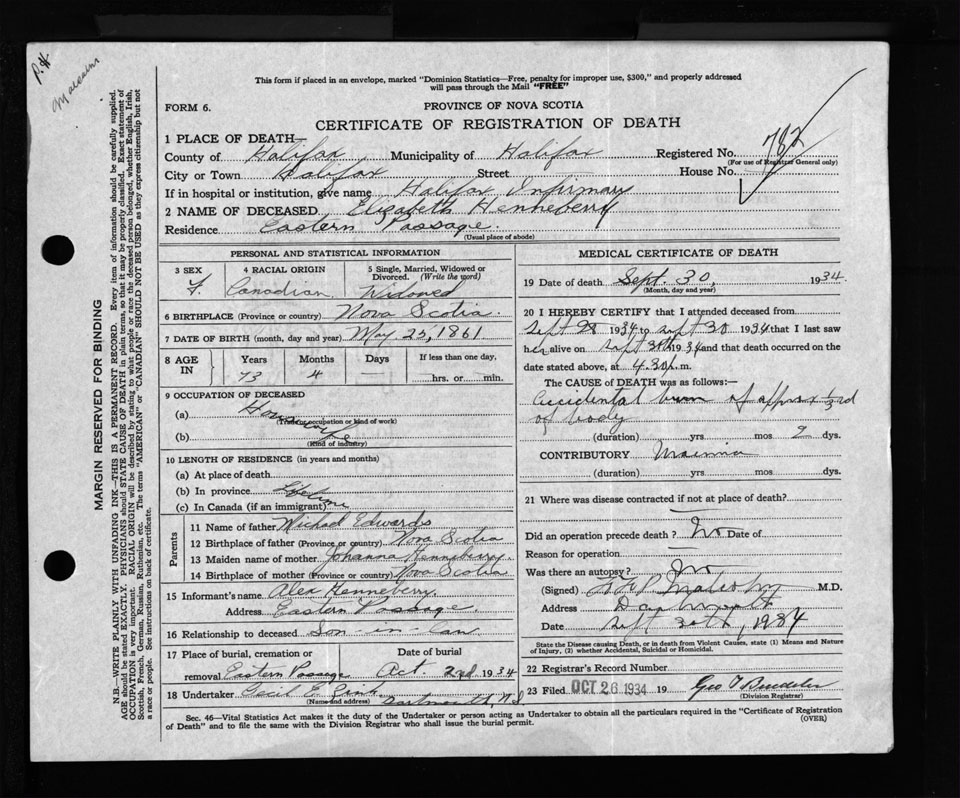 P.H.
This form if placed in an envelope, marked "Dominion Statistics—Free, penalty for improper use, $300," and properly addressed
will pass through the Mail "FREE"
FORM 6.
PROVINCE OF NOVA SCOTIA
CERTIFICATE OF REGISTRATION OF DEATH
1 PLACE OF DEATH—
County of Halifax Municipality of Halifax Registered No. 782
(For use of Registrar General only)
City or Town Halifax Street House No.
If in hospital or institution, give name Halifax Infirmary
2 NAME OF DECEASED Elizabeth Henneberry
Residence Eastern Passage.
(Usual place of abode)
PERSONAL AND STATISTICAL INFORMATION
3 SEX
F.
4 RACIAL ORIGIN
Canadian
5 Single, Married, Widowed or
Divorced. (Write the word)
Widowed
6 BIRTHPLACE (Province or country) Nova Scotia
7 DATE OF BIRTH (month, day and year) May 25, 1861
8 AGE
IN
Years
73
Months
4
Days
If less than one day,
hrs. or min.
9 OCCUPATION OF DECEASED
(a) Housewife
(Trade occupation or kind of work)
(b)
(Kind of industry)
10 LENGTH OF RESIDENCE (in years and months)
(a) At place of death
(b) In province Lifetime
(c) In Canada (if an immigrant)
Parents
11 Name of father Michael Edwards
12 Birthplace of father (Province or country) Nova Scotia
13 Maiden name of mother Johanna Henneberry.
14 Birthplace of mother (Province or country) Nova Scotia
15 Informant's name Alex Henneberry
Address Eastern Passage.
16 Relationship to deceased Son-in-law
17 Place of burial, cremation or
removal Eastern Passage
Date of burial
Oct. 2nd 1934
18 Undertaker Cecil E.
(Name and address) Dartmouth, N.S.
MEDICAL CERTIFICATE OF DEATH
19 Date of death Sept. 30, 1934
(Month, day and year)
20 I HEREBY CERTIFY that I attended deceased from
Sept 28 1934 to Sept 30 1934 that I last saw
her alive on Sept 30th 1934 and that death occurred on
the date stated above, at 4.30 .m.
The CAUSE of DEATH was as follows:
Accidental burn of approx 1/3rd
of body
(duration) yrs mos 2 dys.
CONTRIBUTORY
(duration) yrs. mos. dys.
21 Where was disease contracted if not at place of death?
Did an operation precede death? No Date of
Reason for operation
Was there an autopsy? No
(Signed) M.D.
Address Dartmouth
Date Sept 30th, 1934
State the Disease causing Death, or in death from Violent Causes, state (1) Means and Nature
of Injury, (2) whether Accidental, Suicidal or Homicidal.
22 Registrar's Record Number
23 Filed OCT 26 1934 19
(Division Registrar)
Sec. 46—Vital Statistics Act makes it the duty of the Undertaker or person acting as Undertaker to obtain all the particulars required in the "Certificate of Registration
of Death" and to file the same with the Division Registrar who shall issue the burial permit.
(OVER)
MARGIN RESERVED FOR BINDING
N.B.—WRITE PLAINLY WITH UNFADING INK—THIS IS A PERMANENT RECORD. Every item of information should be carefully supplied.
AGE should be stated EXACTLY. PHYSICIANS should STATE CAUSE OF DEATH in plain terms, so that it may be properly classified. Exact statement of
OCCUPATION is very important. RACIAL ORIGIN will be described by stating to what people or race the deceased person belonged, whether English, Irish,
Scottish, French, German, Russian, Ruthenian, etc. The terms "AMERICAN" or "CANADIAN" SHOULD NOT BE USED as they express citizenship but not
a race or people. See instructions on back of certificate.